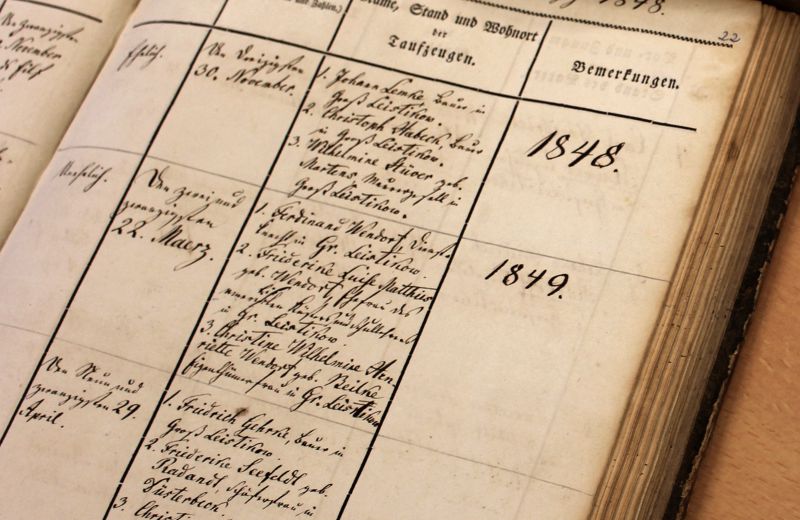 1848.
22
und Zahlen.)
Name, Stand und Wohnort
der
Taufzeugen.
Bemerkungen.
November
ehelich.
Den Dreizigsten
30. November.
1. Johann Lemke, Bauer in
Groß Leistikow.
2. Christoph Habeck, Bauer
in Groß Leistikow.
3. Wilhelmine Stüver geb.
Martens, Maurergesell in
Groß Leistikow.
1848.
Unehelich.
Den zwei und
zwanzigsten
22. Maerz.
1. Ferdinand Wendorf, Dienst-
knecht in Gr. Leistikow.
2. Friederike Luise Matthies
geb. Wendorf, Ehefrau des
in Gr. Leistikow.
3. Christine Wilhelmine Hen-
riette Wendorf geb. Beilke
Eigenthümerfrau in Gr. Leistikow
1849.
Den Neun und
zwanzigsten 29.
April.
1. Friedrich Gehrke, Bauer in
Groß Leistikow.
2. Friederike Seefeldt geb.
Radandt, Schäferfrau in
Düsterbeck.
3.